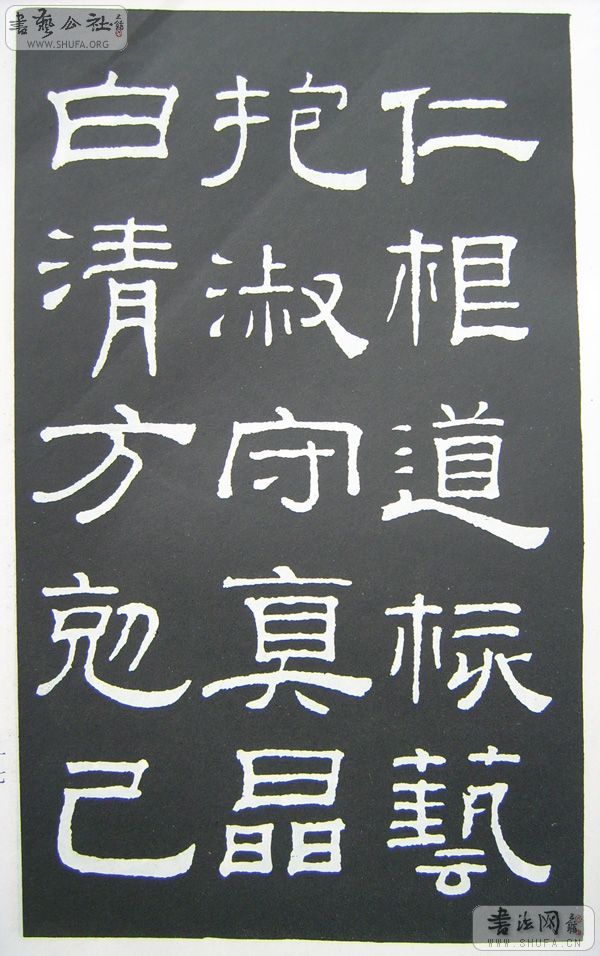 仁根道核藝
抱淑守真晶
白清方剋己
書藝公社
WWW.SHUFA.ORG
書法网
WWW.SHUFA.CN